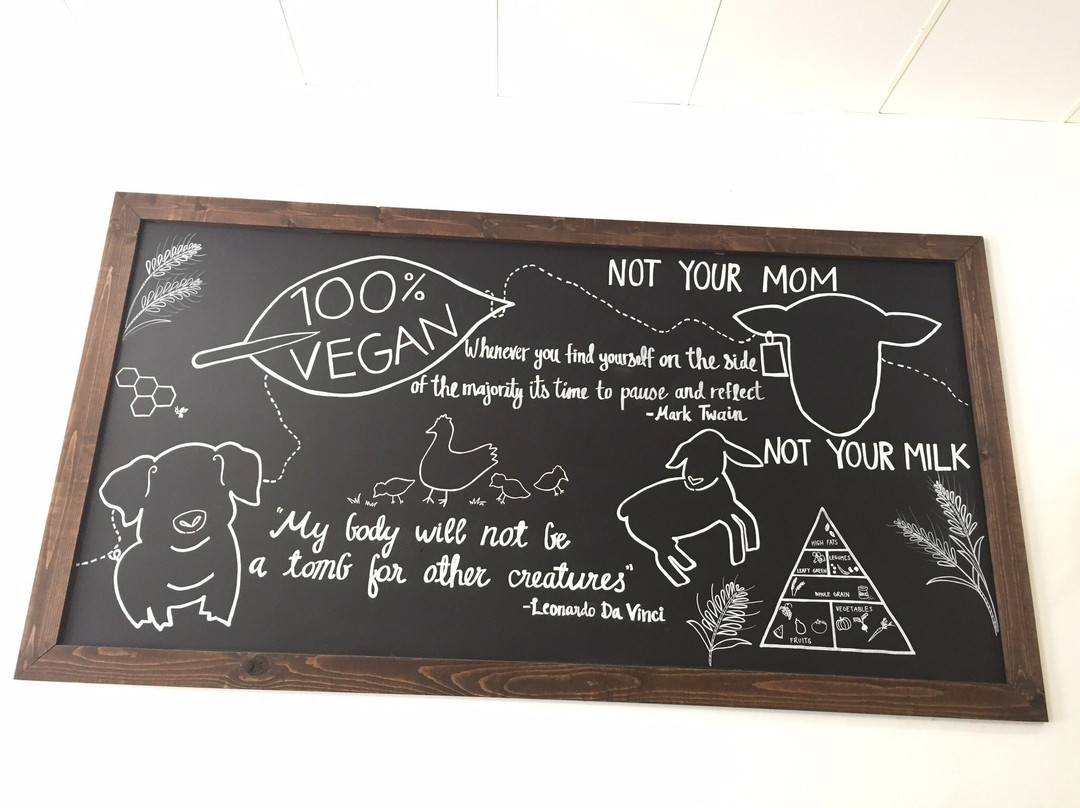 100%
VEGAN
NOT YOUR MOM
Whenever you find yourself on the side
of the majority its time to pause and reflect
-Mark Twain
NOT YOUR MILK
"My body will not be
a tomb for other creatures"
-Leonardo Da Vinci
HIGH FATS
LEGUMES
LEAFY GREEN
WHOLE GRAIN
VEGETABLES
FRUITS